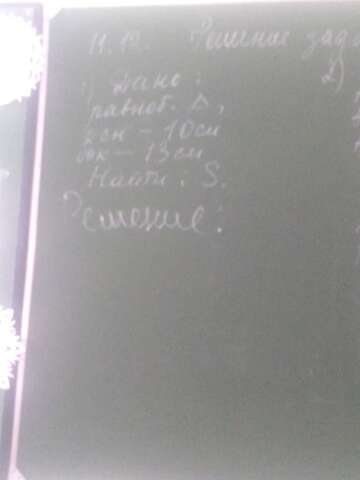 11.12. Решение зад
1) Дано:
равноб. Δ,
осн – 10см
бок – 13см
Найти: S.
Решение:
2)